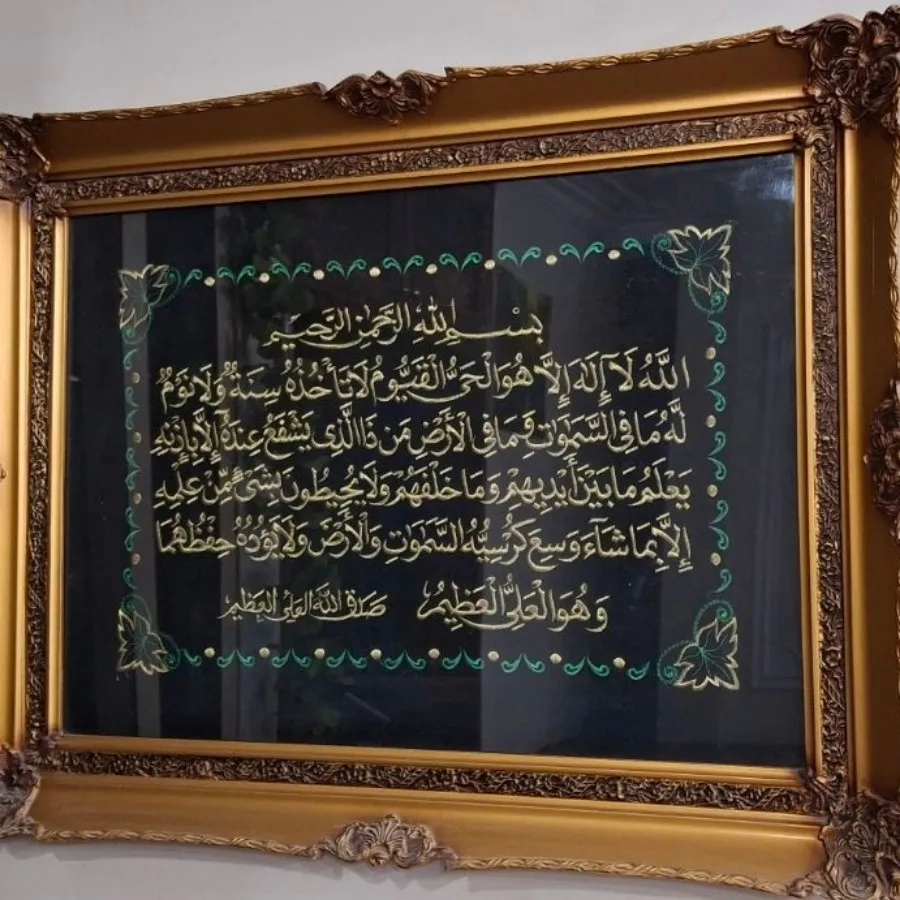 بِسْمِ اللهِ الرَّحْمٰنِ الرَّحِيمِ
اَللّٰهُ لَآ إِلٰهَ إِلَّا هُوَ الْحَيُّ الْقَيُّومُ لَا تَأْخُذُهُ سِنَةٌ وَلَا نَوْمٌ
لَهُ مَا فِي السَّمٰوٰتِ وَمَا فِي الْأَرْضِ مَن ذَا الَّذِي يَشْفَعُ عِندَهُ إِلَّا بِإِذْنِهِ
يَعْلَمُ مَا بَيْنَ أَيْدِيهِمْ وَمَا خَلْفَهُمْ وَلَا يُحِيطُونَ بِشَىْءٍ مِّنْ عِلْمِهِ
إِلَّا بِمَا شَآءَ وَسِعَ كُرْسِيُّهُ السَّمٰوٰتِ وَالْأَرْضَ وَلَا يَؤُدُهُ حِفْظُهُمَا
وَهُوَ الْعَلِيُّ الْعَظِيمُ صَدَقَ اللهُ الْعَلِيُّ الْعَظِيمُ